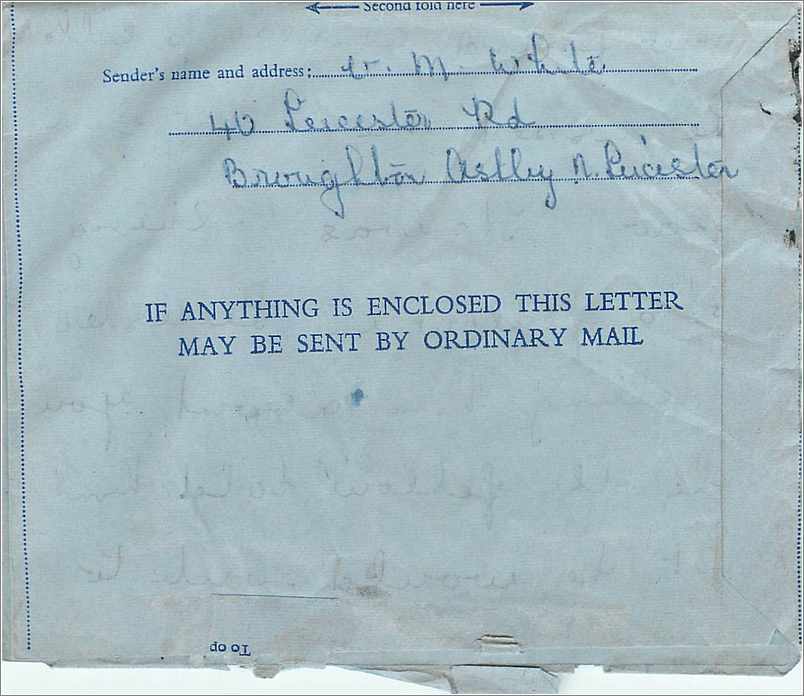 Second fold here
Sender's name and address: M. White
40 Leicester Rd
Broughton Astley N. Leicester
IF ANYTHING IS ENCLOSED THIS LETTER
MAY BE SENT BY ORDINARY MAIL
To op